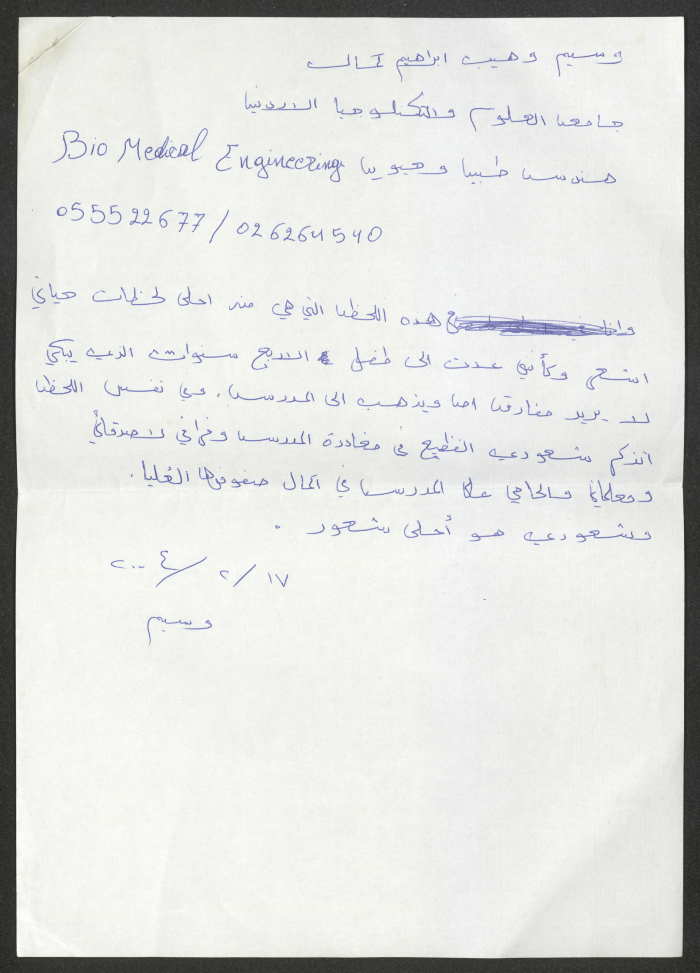 وسيم وهيب ابراهيم
جامعة العلوم والتكنولوجيا الاردنية
هندسة طبية وحيوية Bio Medical Engineering
0555 22677 / 026264540
هذه اللحظة التي هي من احلى لحظات حياتي
اشعر وكأني عدت الى طفل الاربع سنوات الذي يبكي
لا يريد مفارقة امه ويذهب الى المدرسة. وفي نفس اللحظة
اتذكر شعوري الفظيع في مغادرة المدرسة وفراقي لاصدقائي
ومعلماتي والحاحي على المدرسة في اكمال صفوفها العُليا.
وشعوري هو أحلى شعور .
١٧ / ٢ / ٢٠٠٤
وسيم